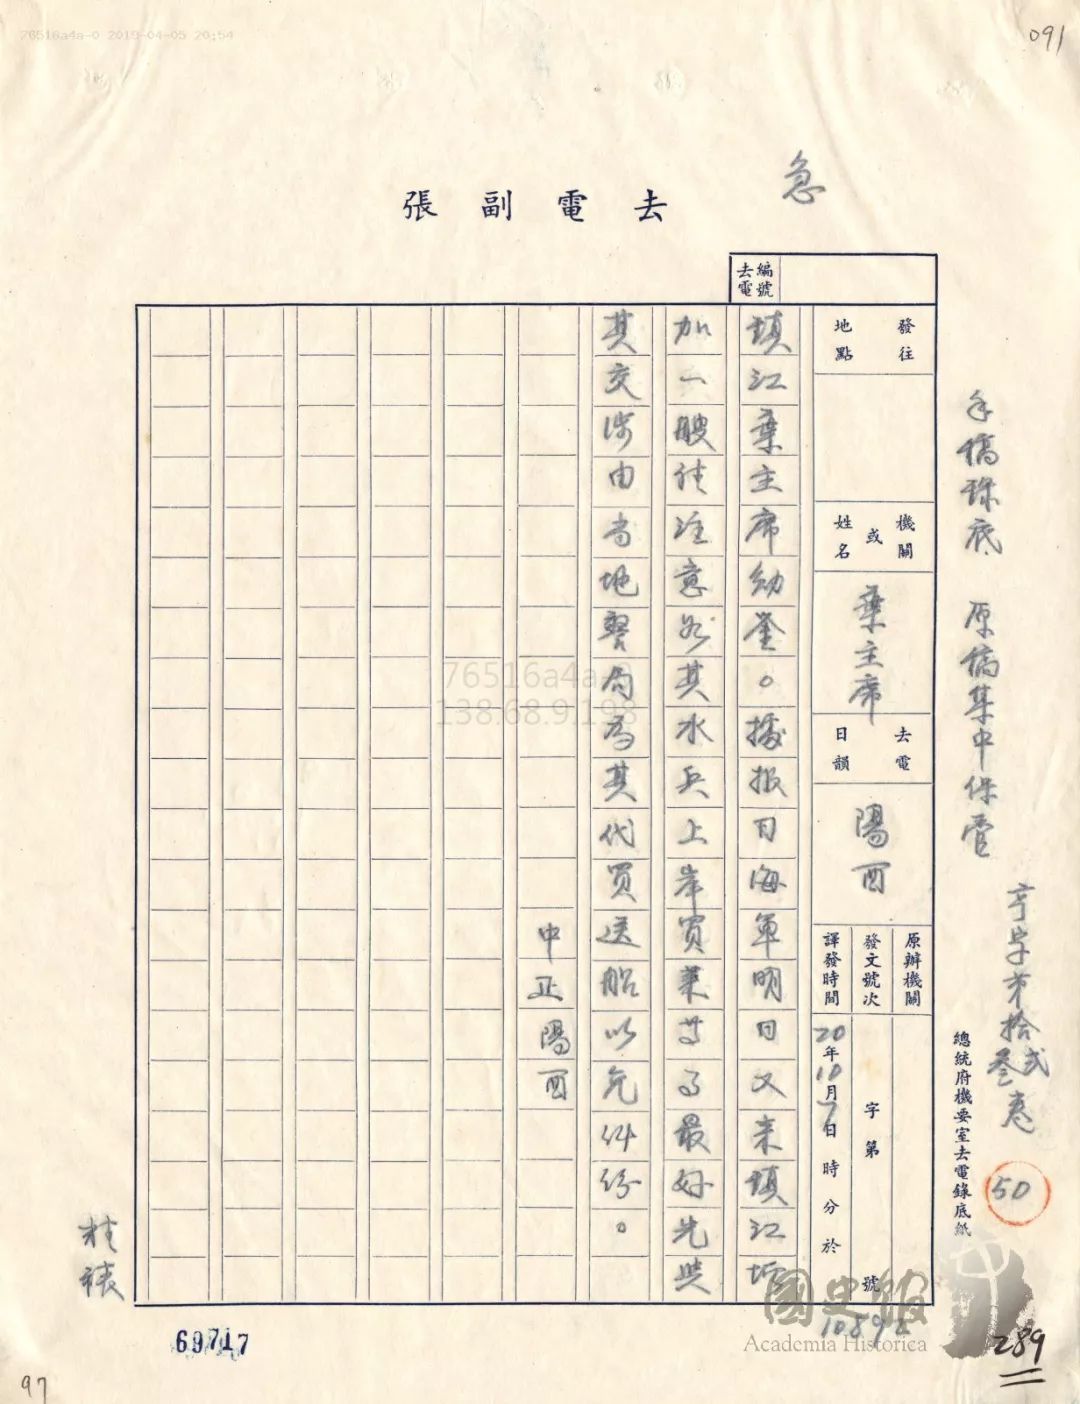 76516a4a-0 2019-04-05 20:54
091
急
去電副張
去電編號
發往地點
機關或姓名
葉主席
去電日韻
陽酉
原辦機關
發文號次
字第 號
譯發時間
20年10月7日 時 分於
鎮江葉主席幼釜。據報日海軍明日又來鎮江
加一艘請注意於其水兵上岸買菜等事最好先與
其交涉由當地警局為其代買送船以免糾紛。
中正陽酉
手稿 底 原稿集中保管
亨字第拾弍 卷
50
總統府機要室去電錄底紙
76516a4a-0
138.68.9.198
69717
國史館
Academia Historica
289
97